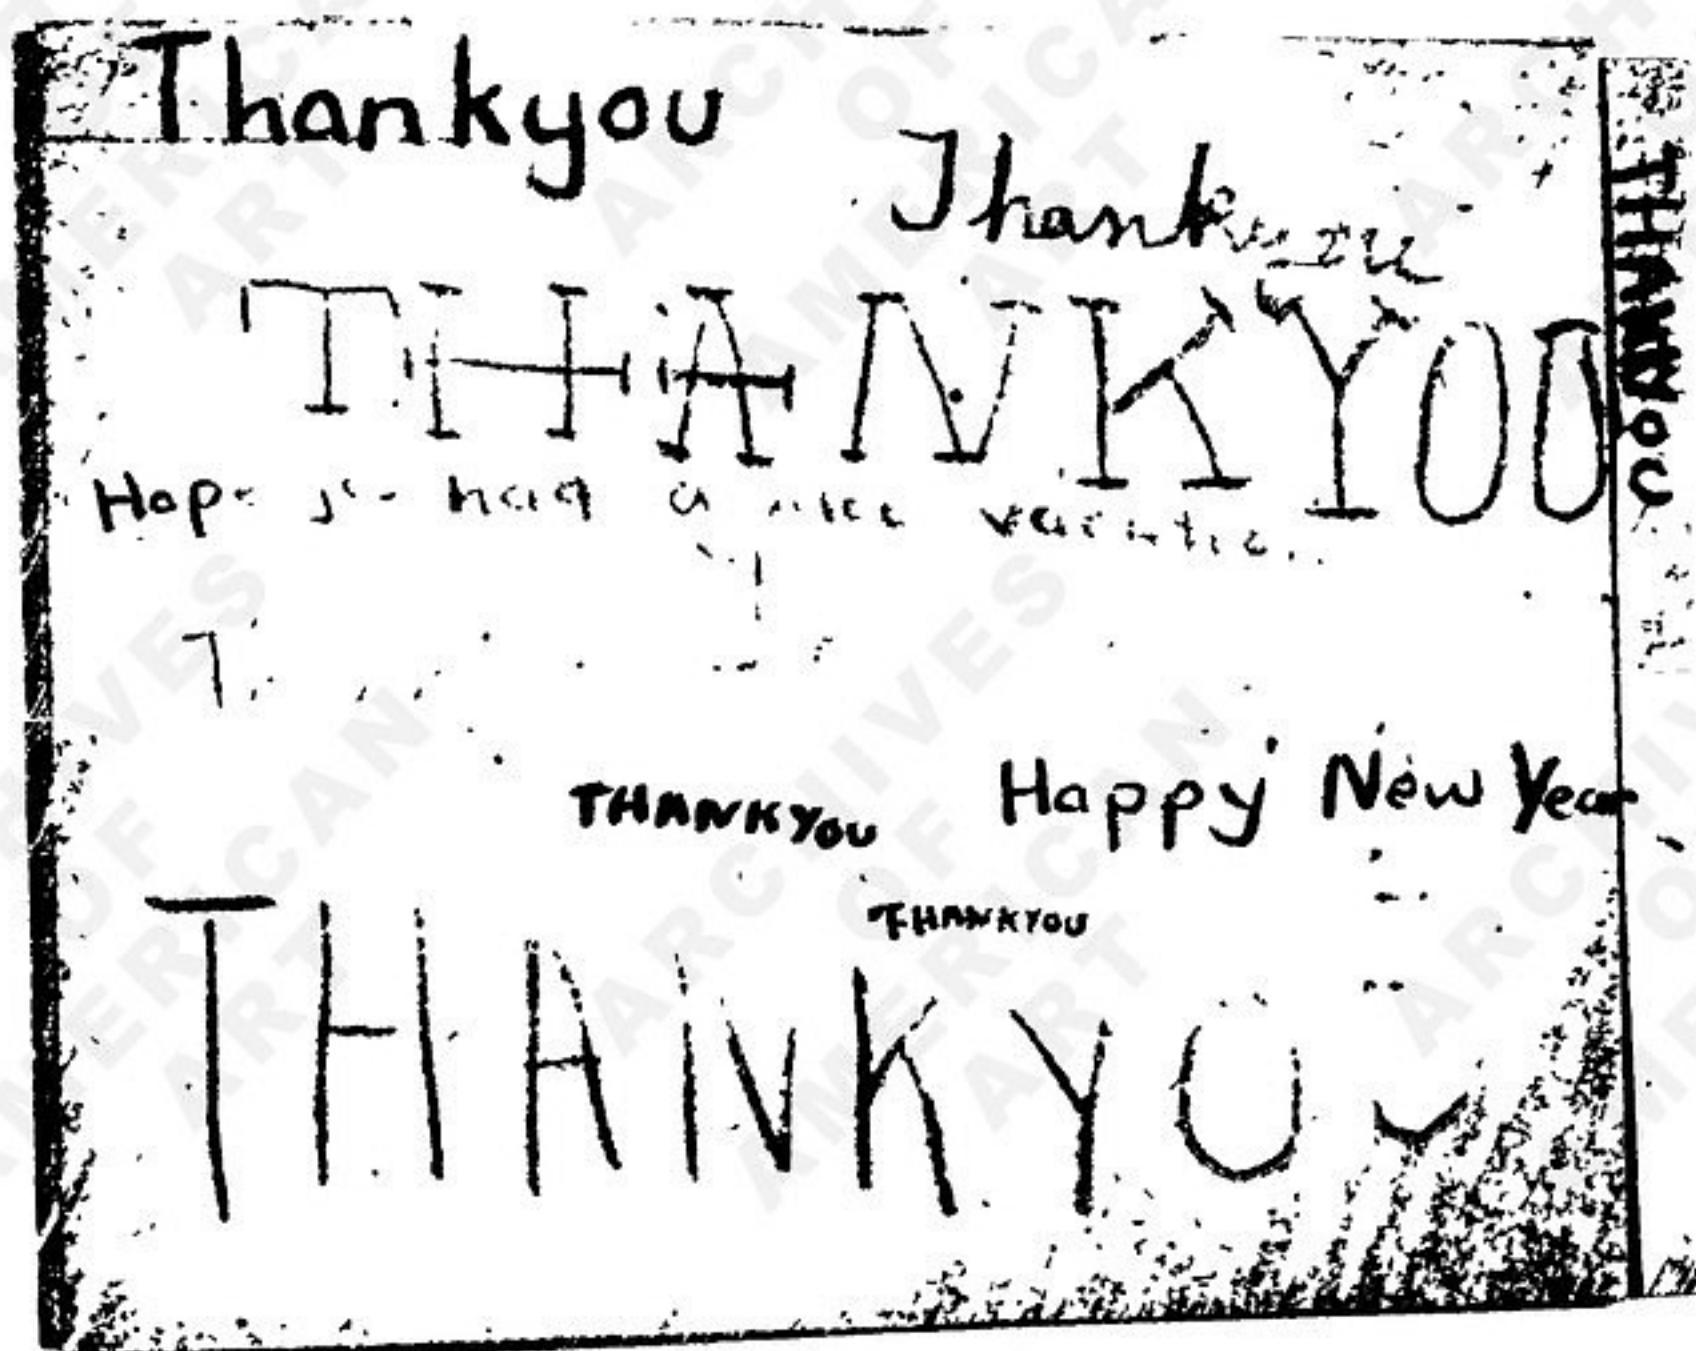 Thankyou
Thank you
THANKYOU
THANKYOU
Hope you had a nice vacation
THANKYOU
Happy New Year
THANKYOU
THANKYOU
ARCHIVES OF AMERICAN ART